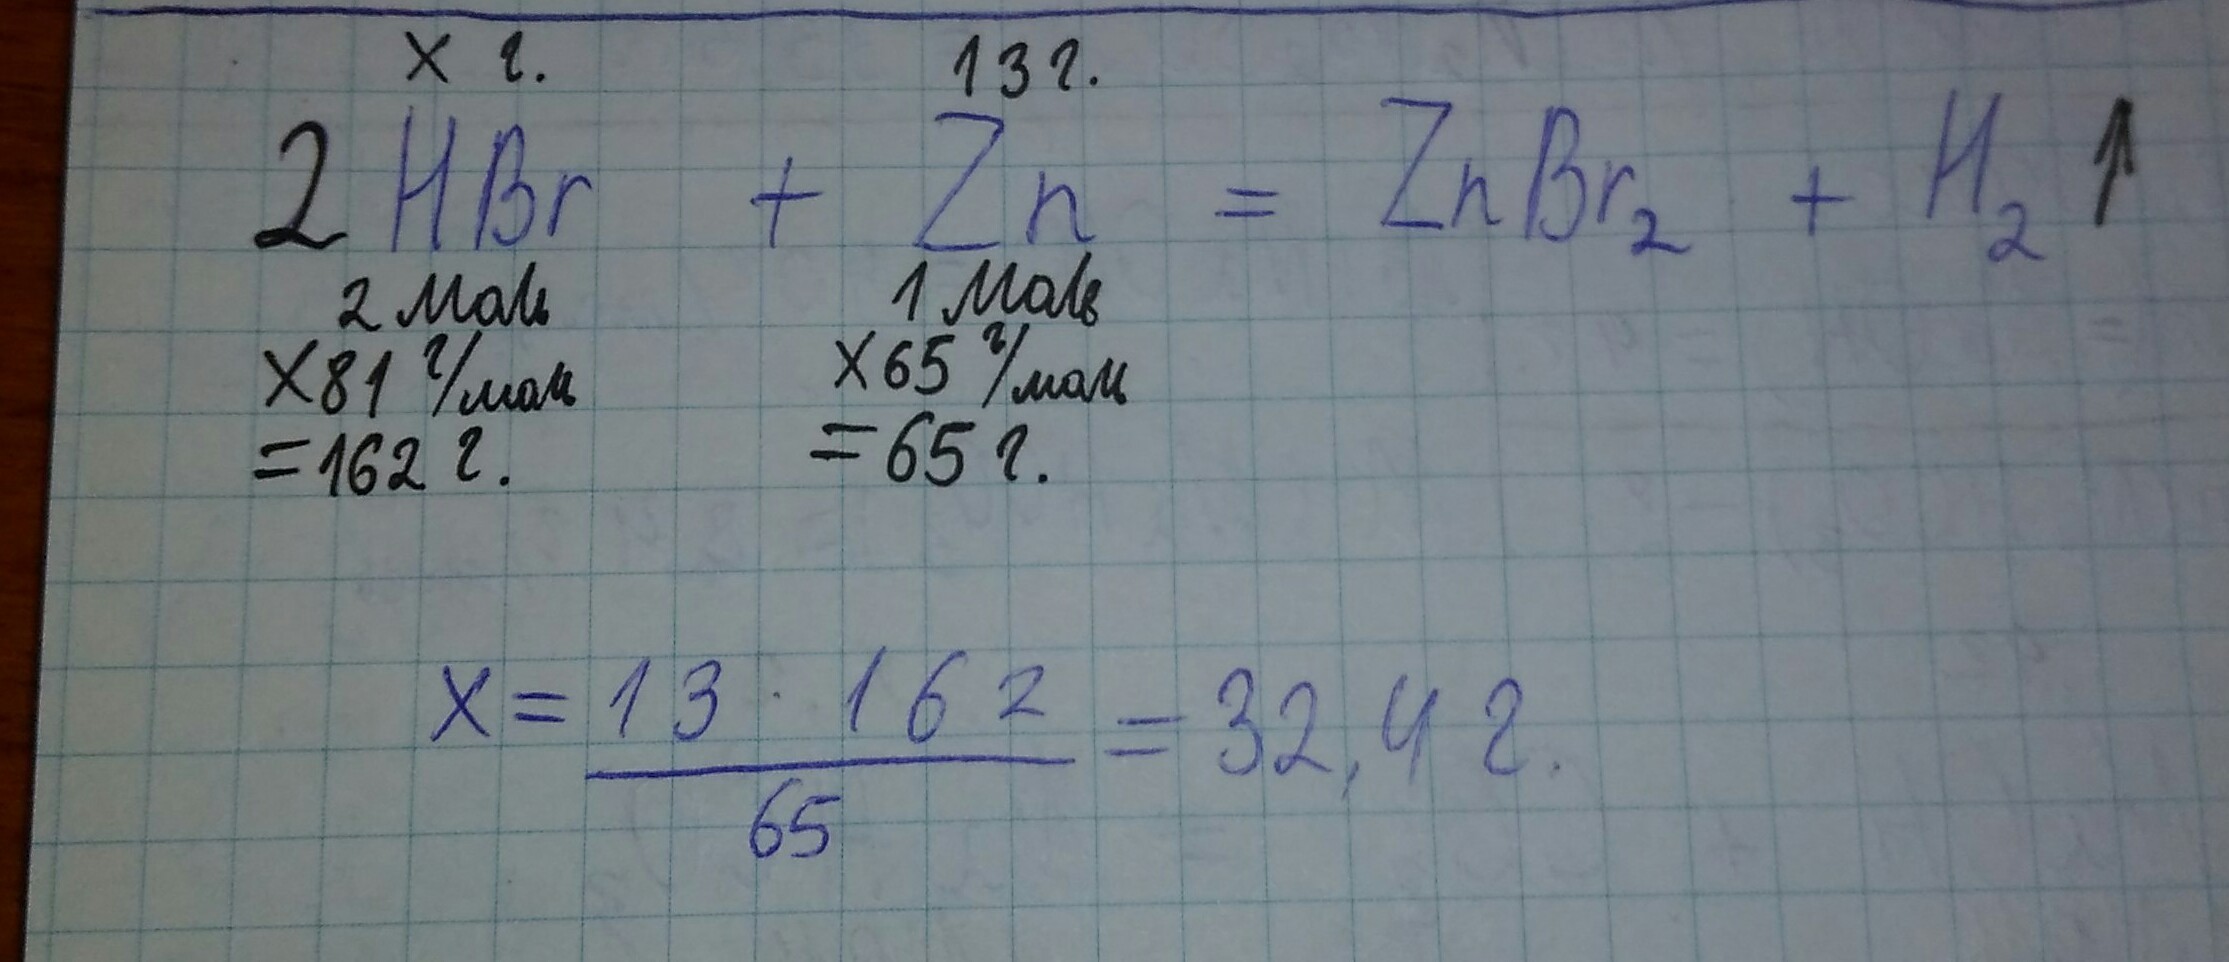 x г. 13 г.
2 HBr + Zn = ZnBr₂ + H₂ ↑
2 моль 1 моль
x 81 г/моль x 65 г/моль
= 162 г. = 65 г.
x = 13 · 162 / 65 = 32,4 г.